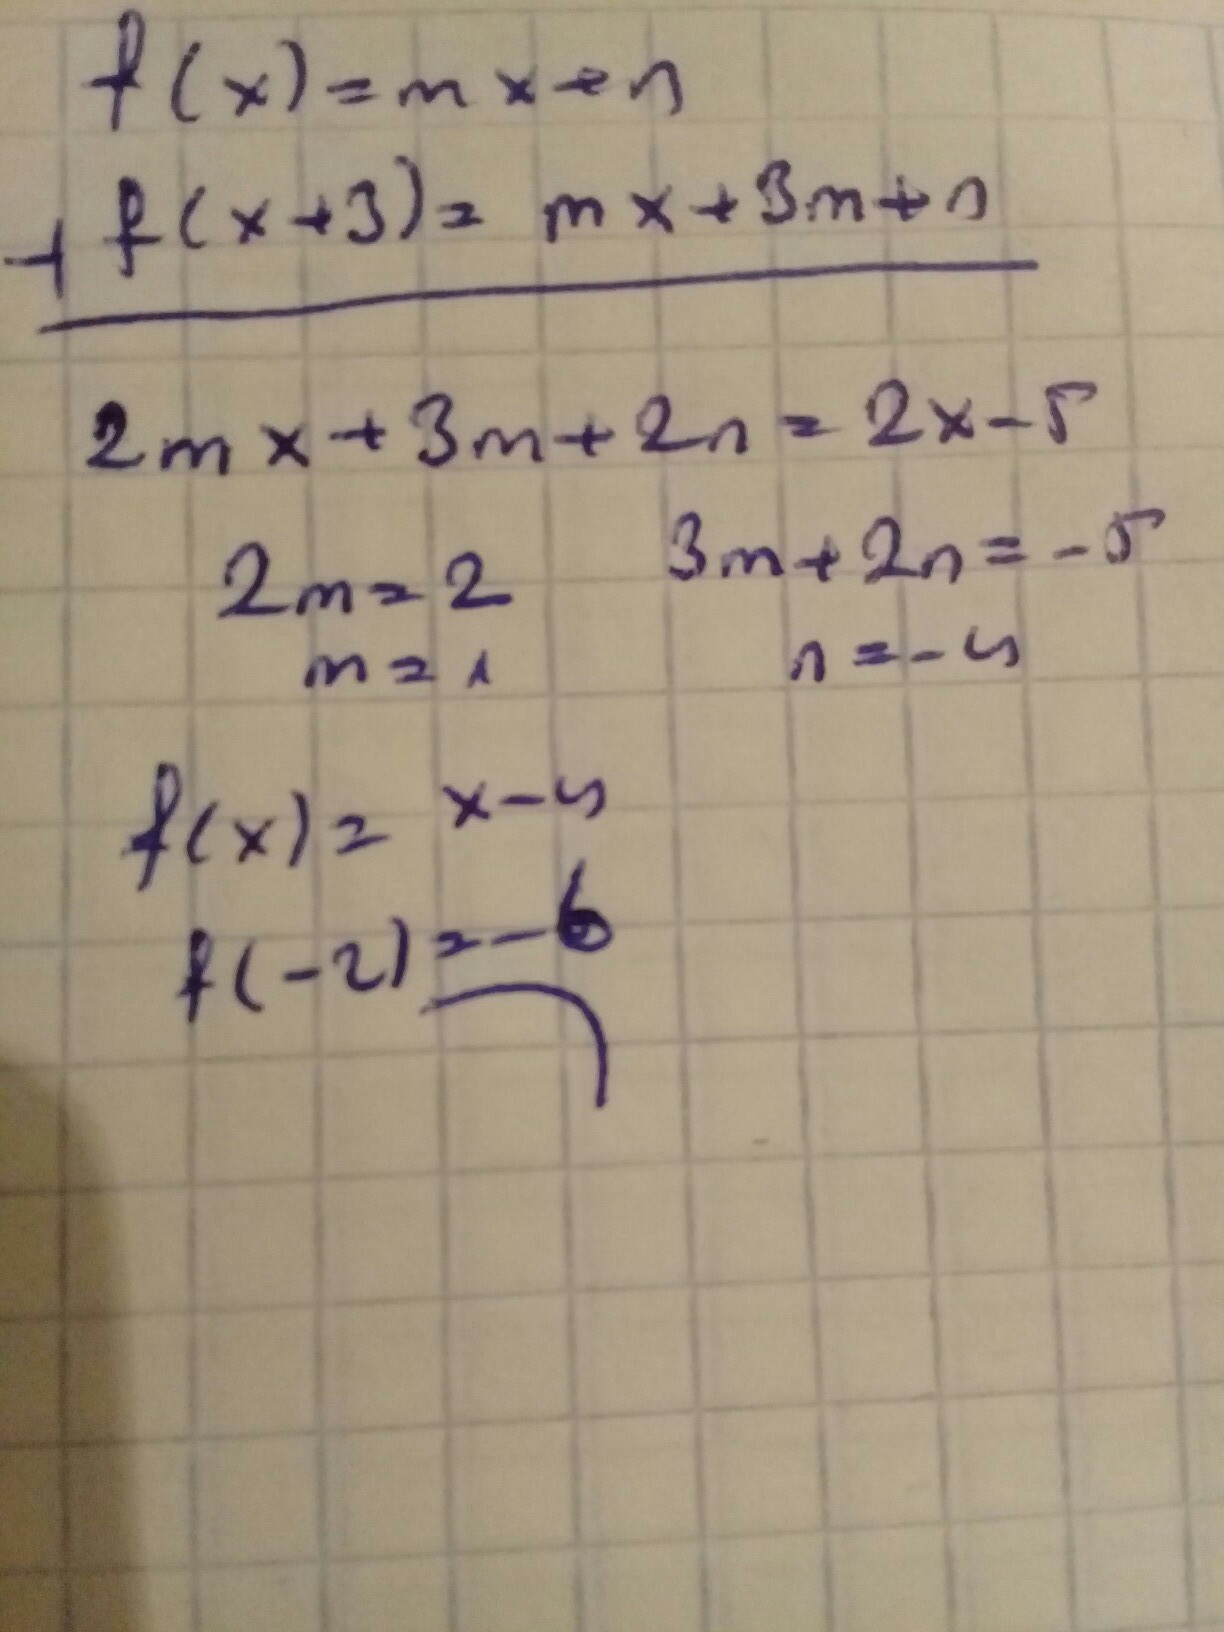 f(x)=mx+n
+ f(x+3)= mx+3m+n
2mx+3m+2n=2x-5
2m=2 3m+2n=-5
m=1 n=-4
f(x)= x-4
f(-2)=-6